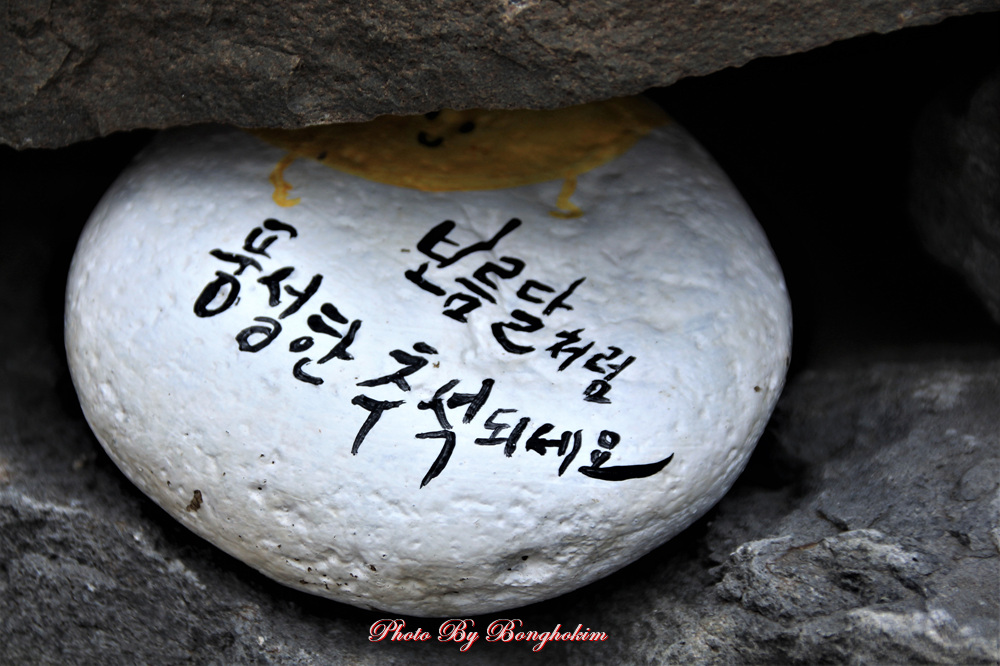 보름달처럼
풍성한 추석되세요
Photo By Bonghokim